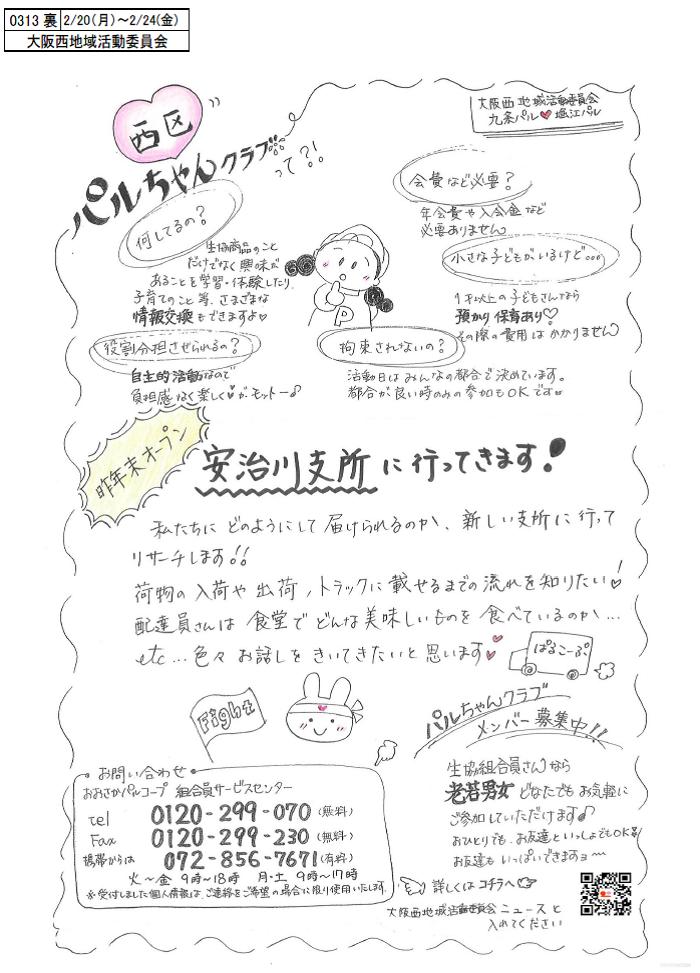 0313 裏 2/20(月)～2/24(金)
大阪西地域活動委員会
大阪西地域活動委員会
九条パル♥堀江パル
西区
パルちゃんクラブって?!
何してるの?
生協商品のこと
だけでなく興味が
あることを学習・体験したり、
子育てのこと等、さまざまな
情報交換もできますよ♡
会費など必要?
年会費や入会金など
必要ありません
小さな子どもがいるけど。。。
1才以上の子どもさんなら
預かり保育あり♡
その際の費用はかかりません
P
役割分担させられるの?
自主的活動なので
負担感なく楽しく♥がモットー♪
拘束されないの?
活動日はみんなの都合で決めています。
都合が良い時のみの参加もOKです。
昨年末オープン
安治川支所に行ってきます!
私たちにどのようにして届けられるのか、新しい支所に行って
リサーチします!!
荷物の入荷や出荷、トラックに載せるまでの流れを知りたい!
配達員さんは食堂でどんな美味しいものを食べているのか…
etc…色々お話しをきいてきたいと思います♥
ぱるこーぷ
Fight
パルちゃんクラブ
メンバー募集中!!
生協組合員さんなら
老若男女どなたでもお気軽に
ご参加していただけます♪
おひとりでも、お友達といっしょでもOK!!
お友達もいっぱいできますョ〜
お問い合わせ
おおさかパルコープ 組合員サービスセンター
tel 0120-299-070(無料)
Fax 0120-299-230(無料)
携帯からは 072-856-7671(有料)
火～金 9時～18時 月・土 9時～17時
※受付しました個人情報は、ご連絡をご希望の場合に限り使用いたします。
詳しくはコチラへ
大阪西地域活動委員会ニュースと
入れてください